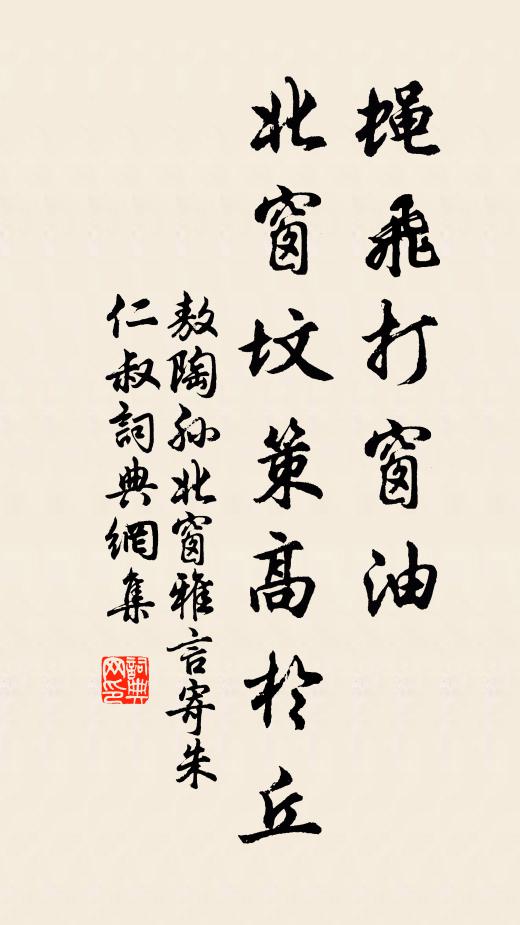 蝇飛打窗油
北窗坟策高於丘
敖陶孙北窗雅言寄朱
仁叔詞典網集
詞典网印